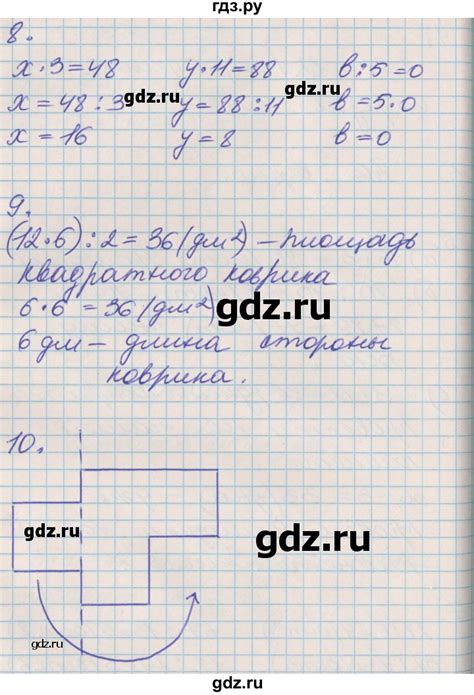 гдз.ру
8.
x·3=48 y·11=88 в:5=0
x=48:3 y=88:11 в=5·0
x=16 y=8 в=0
gdz.ru
9.
(12·6):2=36(дм²) – площадь
квадратного коврика
6·6=36(дм²)
gdz.ru
6 дм – длина стороны
коврика.
10.
gdz.ru
gdz.ru
gdz.ru
gdz.ru